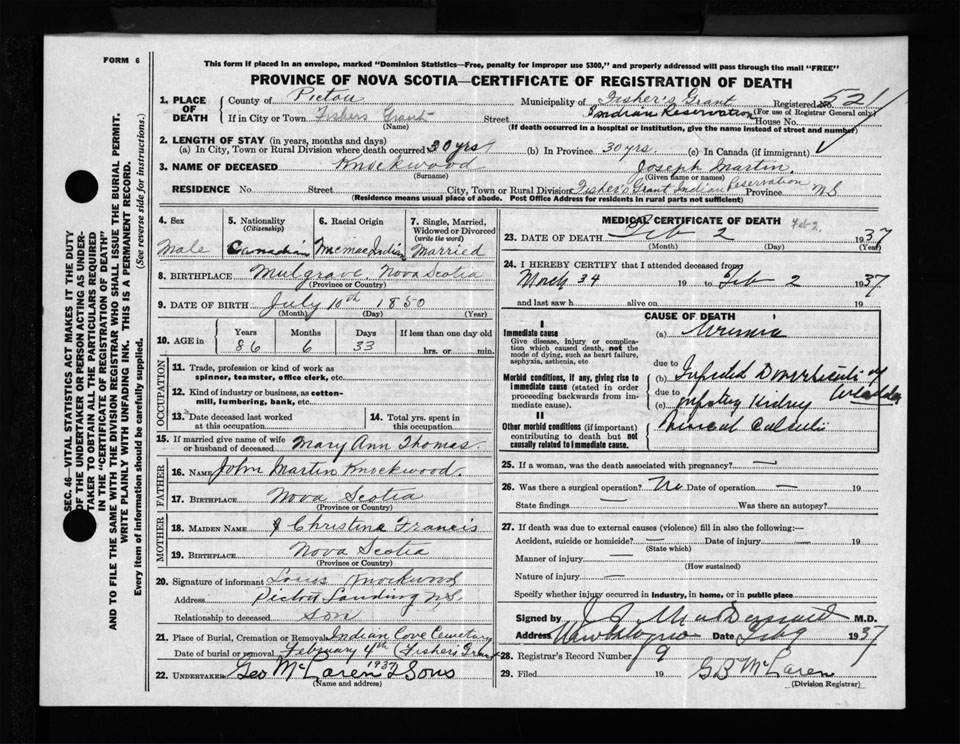 FORM 6
This form if placed in an envelope, marked "Dominion Statistics—Free, penalty for improper use $300," and properly addressed will pass through the mail "FREE"
PROVINCE OF NOVA SCOTIA—CERTIFICATE OF REGISTRATION OF DEATH
SEC. 46—VITAL STATISTICS ACT MAKES IT THE DUTY
OF THE UNDERTAKER OR PERSON ACTING AS UNDER-
TAKER TO OBTAIN ALL THE PARTICULARS REQUIRED
IN THE "CERTIFICATE OF REGISTRATION OF DEATH"
AND TO FILE THE SAME WITH THE DIVISION REGISTRAR WHO SHALL ISSUE THE BURIAL PERMIT.
WRITE PLAINLY WITH UNFADING INK. THIS IS A PERMANENT RECORD.
Every item of information should be carefully supplied. (See reverse side for instructions.)
1. PLACE OF DEATH County of Pictou Municipality of Fisher's Grant Registered No. 521
Indian Reservation (For use of Registrar General only)
If in City or Town Fishers Grant Street House No.
(Name) (If death occurred in a hospital or institution, give the name instead of street and number)
2. LENGTH OF STAY (in years, months and days)
(a) In City, Town or Rural Division where death occurred 30 yrs (b) In Province 30 yrs. (c) In Canada (if immigrant)
3. NAME OF DECEASED Knockwood Joseph Martin
(Surname) (Given name or names)
RESIDENCE No. Street City, Town or Rural Division Fisher's Grant Indian Reservation Province N S
(Residence means usual place of abode. Post Office Address for residents in rural parts not sufficient)
4. Sex 5. Nationality (Citizenship) 6. Racial Origin 7. Single, Married, Widowed or Divorced (write the word)
Male Canadian Micmac Indian Married
8. BIRTHPLACE Mulgrave, Nova Scotia
(Province or Country)
9. DATE OF BIRTH July 10th 1850
(Month) (Day) (Year)
10. AGE in Years Months Days If less than one day old
86 6 33 hrs. or min.
OCCUPATION
11. Trade, profession or kind of work as spinner, teamster, office clerk, etc.
12. Kind of industry or business, as cotton-mill, lumbering, bank, etc.
13. Date deceased last worked at this occupation 14. Total yrs. spent in this occupation
15. If married give name of wife or husband of deceased Mary Ann Thomas.
FATHER
16. NAME John Martin Knockwood.
17. BIRTHPLACE Nova Scotia
(Province or Country)
MOTHER
18. MAIDEN NAME Christina Francis
19. BIRTHPLACE Nova Scotia
(Province or Country)
20. Signature of informant Louis Knockwood
Address Pictou Landing N.S.
Relationship to deceased son
21. Place of Burial, Cremation or Removal Indian Cove Cemetary
Date of burial or removal February 4th (Fisher's Grant
1937
22. UNDERTAKER Geo McLaren & Sons
(Name and address)
MEDICAL CERTIFICATE OF DEATH
Feb 2.
23. DATE OF DEATH Feb 2 1937
(Month) (Day) (Year)
24. I HEREBY CERTIFY that I attended deceased from
March 34 19 to Feb 2 1937
and last saw h alive on 19
CAUSE OF DEATH
I
Immediate cause (a) Uremia
Give disease, injury or complication which caused death, not the mode of dying, such as heart failure, asphyxia, asthenia, etc
due to
Morbid conditions, if any, giving rise to immediate cause (stated in order proceeding backwards from immediate cause).
(b) Infected of Bladder
due to
(c) Kidney
II
Other morbid conditions (if important) contributing to death but not causally related to immediate cause. Calculi
25. If a woman, was the death associated with pregnancy? —
26. Was there a surgical operation? No Date of operation — 19
State findings Was there an autopsy?
27. If death was due to external causes (violence) fill in also the following:—
Accident, suicide or homicide? — Date of injury — 19
(State which)
Manner of injury —
(How sustained)
Nature of injury —
Specify whether injury occurred in industry, in home, or in public place
Signed by J. MacDonald M.D.
Address Date Feb 9 1937
28. Registrar's Record Number 9
29. Filed 19 G B McLaren
(Division Registrar)